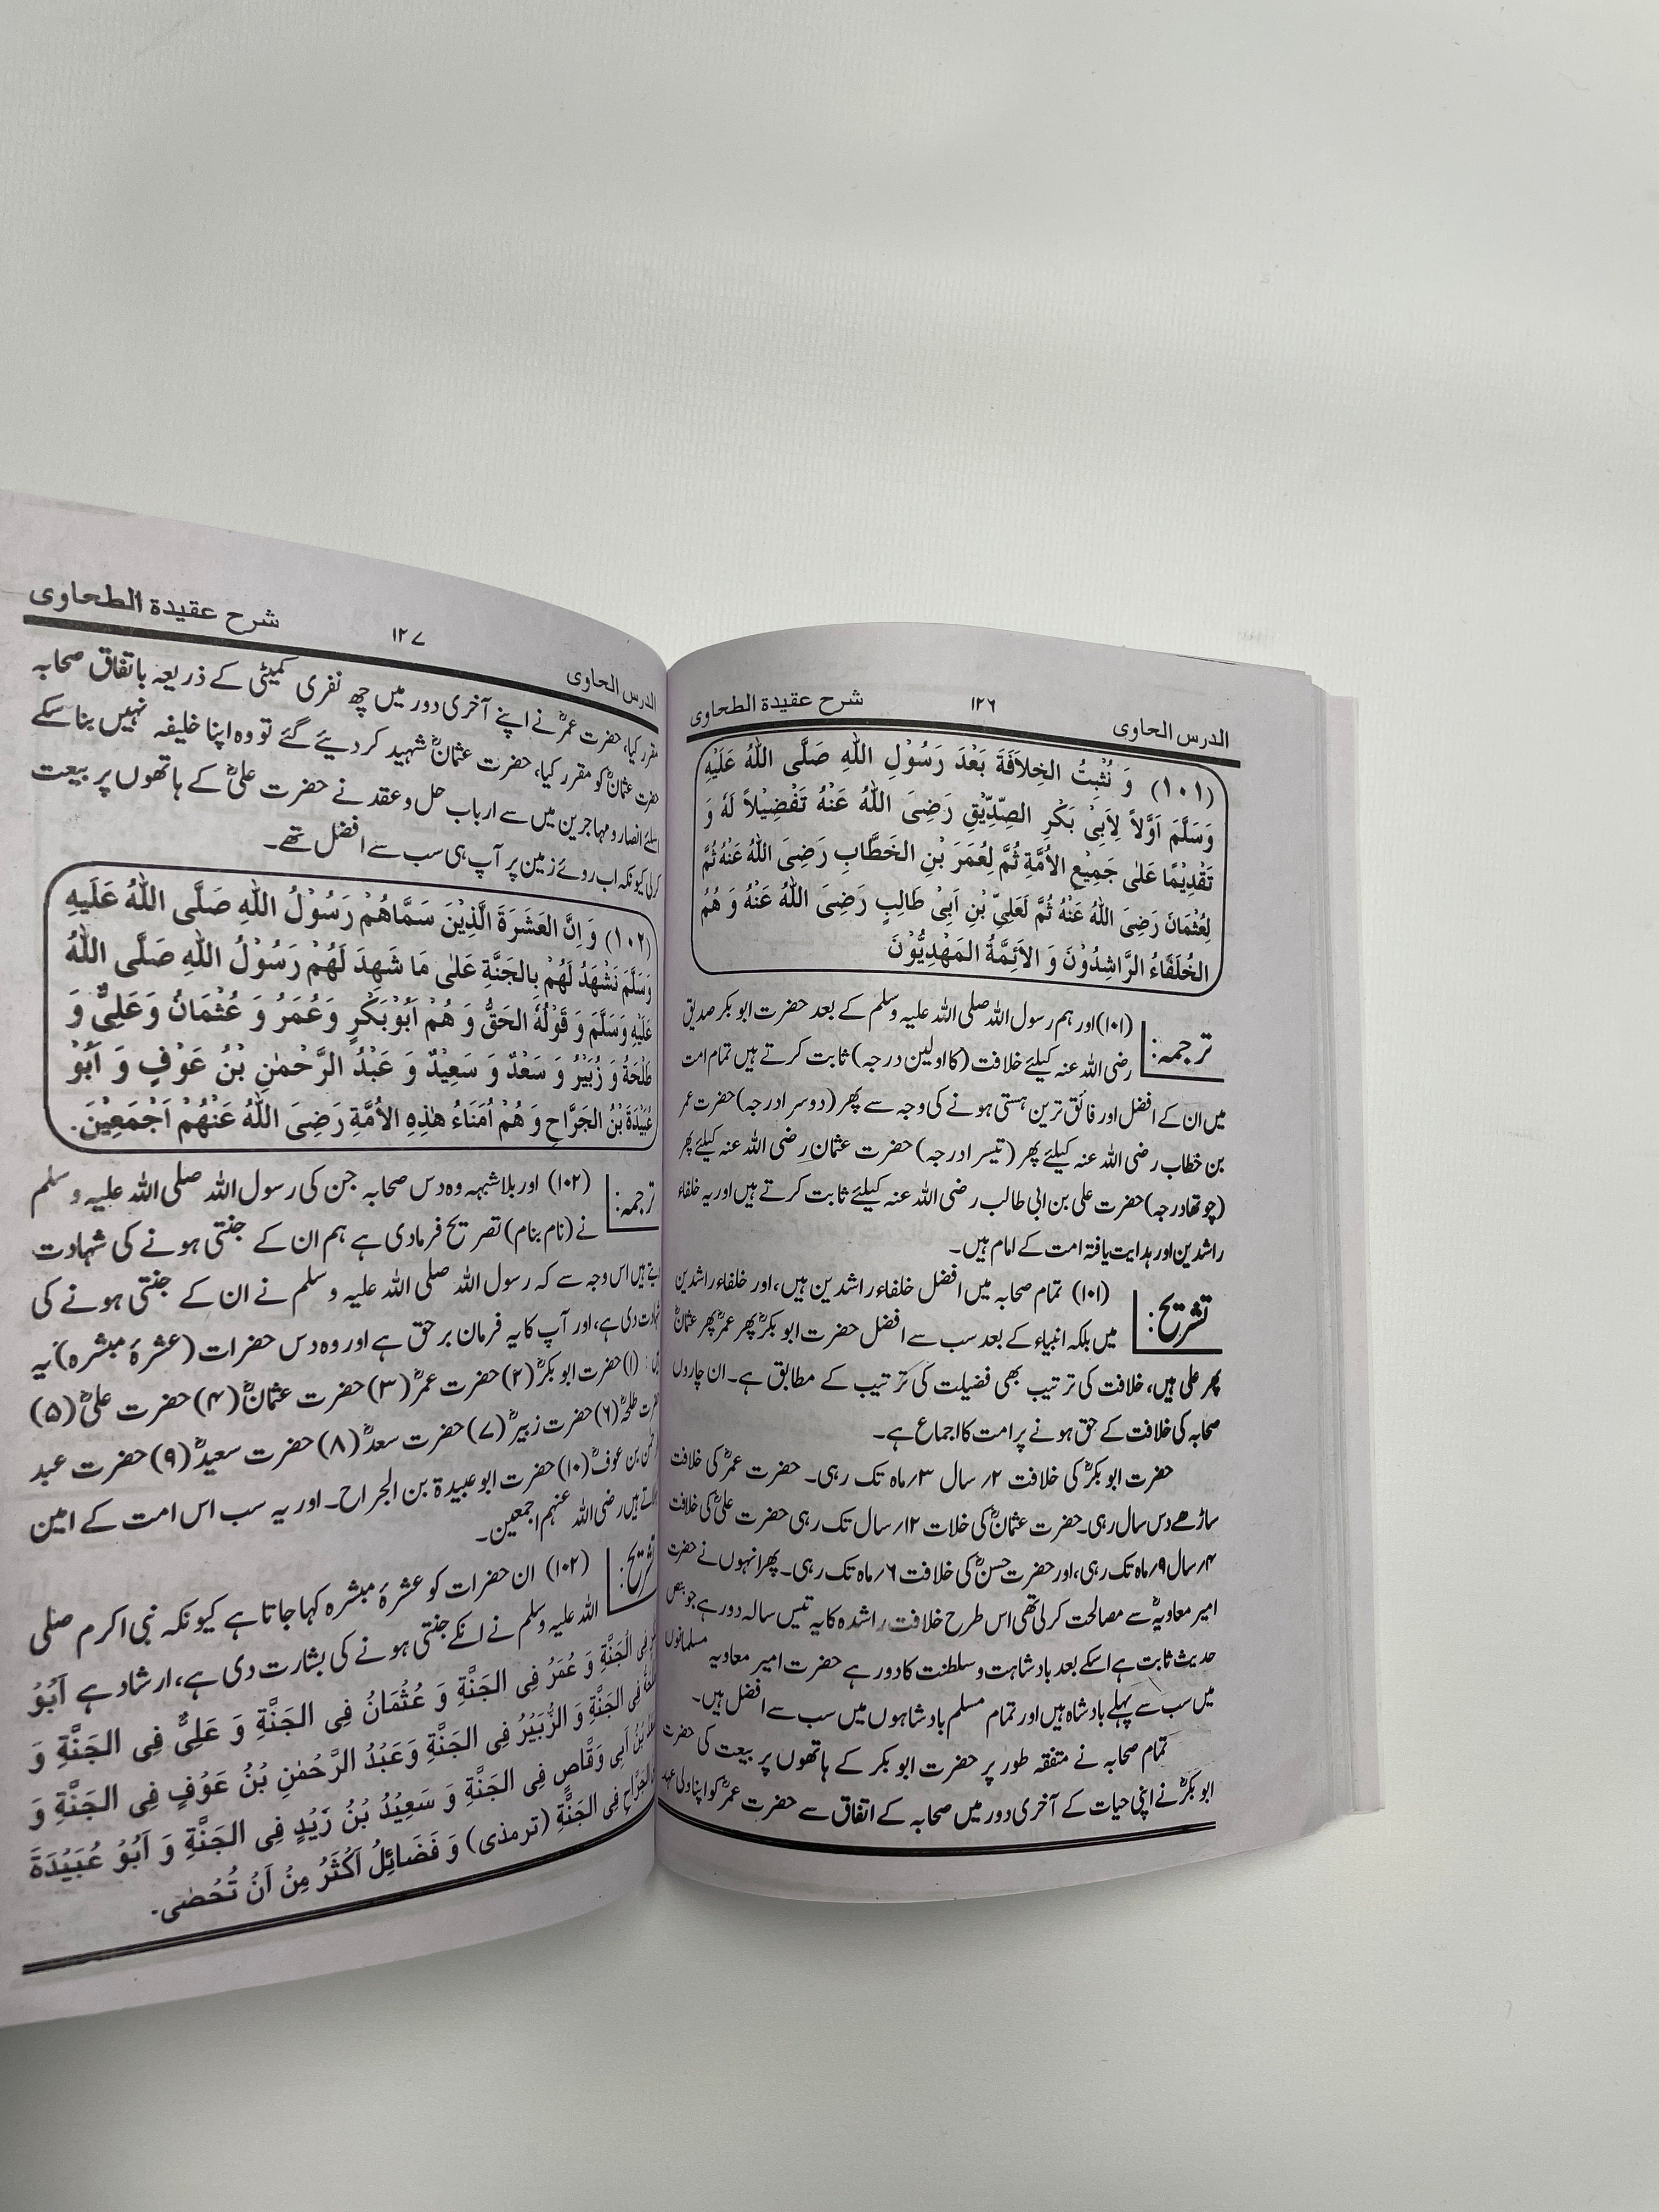 الدرس الحاوی ۱۲۶ شرح عقیدة الطحاوی
(۱۰۱) وَ نُثْبِتُ الخِلَافَةَ بَعْدَ رَسُوْلِ اللهِ صَلَّى اللهُ عَلَيْهِ
وَسَلَّمَ اَوَّلاً لِاَبِیْ بَكْرِ الصِّدِّيْقِ رَضِىَ اللهُ عَنْهُ تَفْضِيْلاً لَهُ وَ
تَقْدِيْمًا عَلٰى جَمِيْعِ الاُمَّةِ ثُمَّ لِعُمَرَ بْنِ الخَطَّابِ رَضِىَ اللهُ عَنْهُ ثُمَّ
لِعُثْمَانَ رَضِىَ اللهُ عَنْهُ ثُمَّ لَعَلِیِّ بْنِ اَبِیْ طَالِبٍ رَضِىَ اللهُ عَنْهُ وَ هُمُ
الخُلَفَاءُ الرَّاشِدُوْنَ وَ الاَئِمَّةُ المَهْدِيُّوْنَ
ترجمہ: (۱۰۱) اور ہم رسول اللہ صلی اللہ علیہ وسلم کے بعد حضرت ابو بکر صدیق
رضی اللہ عنہ کیلئے خلافت (کا اولین درجہ) ثابت کرتے ہیں تمام امت
میں ان کے افضل اور فائق ترین ہستی ہونے کی وجہ سے پھر (دوسرا درجہ) حضرت عمر
بن خطاب رضی اللہ عنہ کیلئے پھر (تیسرا درجہ) حضرت عثمان رضی اللہ عنہ کیلئے پھر
(چوتھا درجہ) حضرت علی بن ابی طالب رضی اللہ عنہ کیلئے ثابت کرتے ہیں اور یہ خلفاء
راشدین اور ہدایت یافتہ امت کے امام ہیں۔
تشریح: (۱۰۱) تمام صحابہ میں افضل خلفاء راشدین ہیں، اور خلفاء راشدین
میں بلکہ انبیاء کے بعد سب سے افضل حضرت ابو بکرؓ پھر عمرؓ پھر عثمانؓ
پھر علی ہیں، خلافت کی ترتیب بھی فضیلت کی ترتیب کے مطابق ہے۔ ان چاروں
صحابہ کی خلافت کے حق ہونے پر امت کا اجماع ہے۔
حضرت ابو بکرؓ کی خلافت ۲/ سال ۳/ ماہ تک رہی۔ حضرت عمرؓ کی خلافت
ساڑھے دس سال رہی۔ حضرت عثمانؓ کی خلات ۱۲/ سال تک رہی حضرت علیؓ کی خلافت
۴/ سال ۹/ ماہ تک رہی، اور حضرت حسنؓ کی خلافت ۶/ ماہ تک رہی۔ پھر انہوں نے حضرت
امیر معاویہؓ سے مصالحت کرلی تھی اس طرح خلافت راشدہ کا یہ تیس سالہ دور ہے جو بنص
حدیث ثابت ہے اسکے بعد بادشاہت و سلطنت کا دور ہے حضرت امیر معاویہ مسلمانوں
میں سب سے پہلے بادشاہ ہیں اور تمام مسلم بادشاہوں میں سب سے افضل ہیں۔
تمام صحابہ نے متفقہ طور پر حضرت ابو بکر کے ہاتھوں پر بیعت کی حضرت
ابو بکرؓ نے اپنی حیات کے آخری دور میں صحابہ کے اتفاق سے حضرت عمرؓ کو اپنا ولی عہد
الدرس الحاوی ۱۲۷ شرح عقیدة الطحاوی
مقرر کیا، حضرت عمرؓ نے اپنے آخری دور میں چھ نفری کمیٹی کے ذریعہ باتفاق صحابہ
حضرت عثمانؓ کو مقرر کیا، حضرت عثمانؓ شہید کردیئے گئے تو وہ اپنا خلیفہ نہیں بنا سکے
اسلئے انصار و مہاجرین میں سے ارباب حل و عقد نے حضرت علیؓ کے ہاتھوں پر بیعت
کرلی کیونکہ اب روئے زمین پر آپ ہی سب سے افضل تھے۔
(۱۰۲) وَ اِنَّ العَشَرَةَ الَّذِيْنَ سَمَّاهُمْ رَسُوْلُ اللهِ صَلَّى اللهُ عَلَيْهِ
وَسَلَّمَ نَشْهَدُ لَهُمْ بِالجَنَّةِ عَلٰى مَا شَهِدَ لَهُمْ رَسُوْلُ اللهِ صَلَّى اللهُ
عَلَيْهِ وَسَلَّمَ وَ قَوْلُهُ الحَقُّ وَ هُمْ اَبُوْبَكْرٍ وَعُمَرُ وَ عُثْمَانُ وَعَلِیٌّ وَ
طَلْحَةُ وَ زُبَيْرُ وَ سَعْدٌ وَ سَعِيْدٌ وَ عَبْدُ الرَّحْمٰنِ بْنُ عَوْفٍ وَ اَبُوْ
عُبَيْدَةَ بْنُ الجَرَّاحِ وَ هُمْ اُمَنَاءُ هٰذِهِ الاُمَّةِ رَضِىَ اللهُ عَنْهُمْ اَجْمَعِيْنَ.
ترجمہ: (۱۰۲) اور بلا شبہہ وہ دس صحابہ جن کی رسول اللہ صلی اللہ علیہ وسلم
نے (نام بنام) تصریح فرمادی ہے ہم ان کے جنتی ہونے کی شہادت
ہیں اس وجہ سے کہ رسول اللہ صلی اللہ علیہ وسلم نے ان کے جنتی ہونے کی
دی ہے، اور آپ کا یہ فرمان برحق ہے اور وہ دس حضرات (عشرۂ مبشرہ) یہ
(۱) حضرت ابو بکرؓ (۲) حضرت عمرؓ (۳) حضرت عثمانؓ (۴) حضرت علیؓ (۵)
طلحہؓ (۶) حضرت زبیرؓ (۷) حضرت سعدؓ (۸) حضرت سعیدؓ (۹) حضرت عبد
بن عوفؓ (۱۰) حضرت ابو عبیدۃ بن الجراح۔ اور یہ سب اس امت کے امین
ہیں رضی اللہ عنہم اجمعین۔
تشریح: (۱۰۲) ان حضرات کو عشرۂ مبشرہ کہا جاتا ہے کیونکہ نبی اکرم صلی
اللہ علیہ وسلم نے انکے جنتی ہونے کی بشارت دی ہے، ارشاد ہے اَبُوْ
فِی الْجَنَّةِ وَ عُمَرُ فِی الجَنَّةِ وَ عُثْمَانُ فِی الجَنَّةِ وَ عَلِیٌّ فِی الجَنَّةِ وَ
فِی الجَنَّةِ وَ الزُّبَيْرُ فِی الجَنَّةِ وَعَبْدُ الرَّحْمٰنِ بْنُ عَوْفٍ فِی الجَنَّةِ وَ
بْنُ اَبِی وَقَّاصٍ فِی الجَنَّةِ وَ سَعِيْدُ بْنُ زَيْدٍ فِی الجَنَّةِ وَ اَبُوْ عُبَيْدَةَ
الجَرَّاحِ فِی الجَنَّةِ (ترمذی) وَ فَضَائِلُ اَكْثَرُ مِنْ اَنْ تُحْصٰى۔